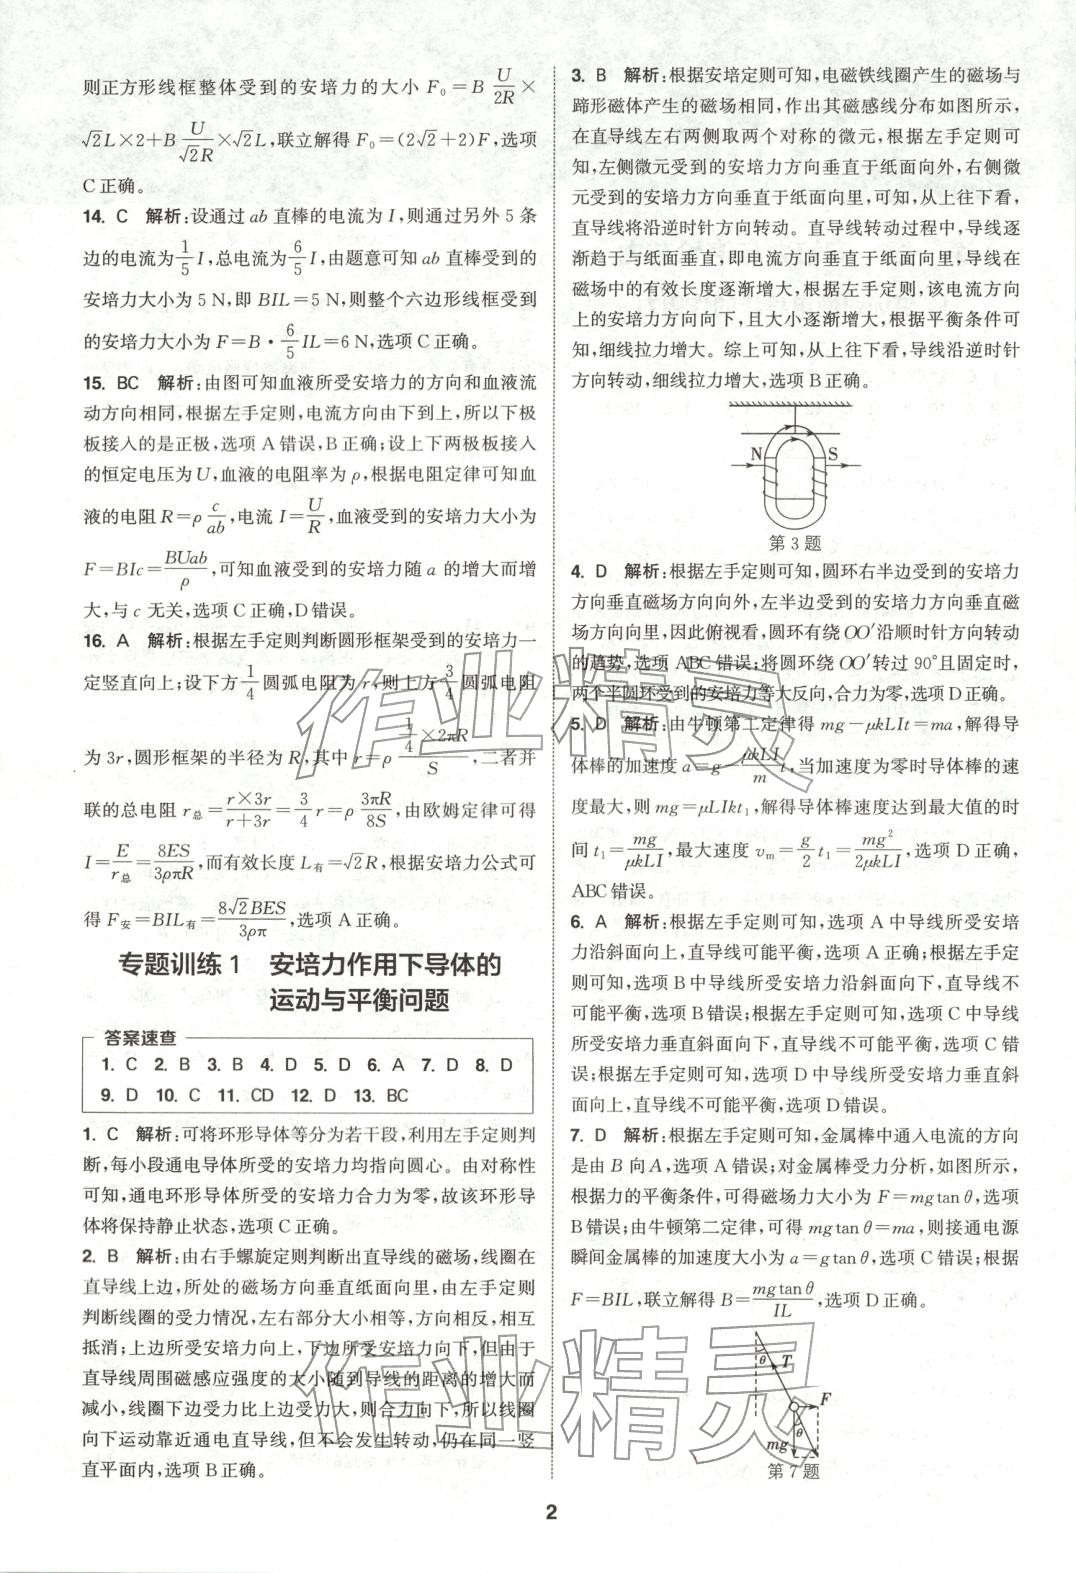 则正方形线框整体受到的安培力的大小 F₀=B U/2R ×
√2L×2+B U/√2R ×√2L,联立解得 F₀=(2√2+2)F,选项
C正确。
14. C 解析:设通过 ab 直棒的电流为 I,则通过另外 5 条
边的电流为 1/5 I,总电流为 6/5 I,由题意可知 ab 直棒受到的
安培力大小为 5 N,即 BIL=5 N,则整个六边形线框受到
的安培力大小为 F=B·6/5 IL=6 N,选项 C 正确。
15. BC 解析:由图可知血液所受安培力的方向和血液流
动方向相同,根据左手定则,电流方向由下到上,所以下极
板接入的是正极,选项 A 错误,B 正确;设上下两极板接入
的恒定电压为 U,血液的电阻率为 ρ,根据电阻定律可知血
液的电阻 R=ρ c/ab,电流 I=U/R,血液受到的安培力大小为
F=BIc=BUab/ρ,可知血液受到的安培力随 a 的增大而增
大,与 c 无关,选项 C 正确,D 错误。
16. A 解析:根据左手定则判断圆形框架受到的安培力一
定竖直向上;设下方 1/4 圆弧电阻为 r,则上方 3/4 圆弧电阻
为 3r,圆形框架的半径为 R,其中 r=ρ (1/4×2πR)/S,二者并
联的总电阻 r总=(r×3r)/(r+3r)=3/4 r=ρ 3πR/8S,由欧姆定律可得
I=E/r总=8ES/3ρπR,而有效长度 L有=√2R,根据安培力公式可
得 F安=BIL有=8√2BES/3ρπ,选项 A 正确。
专题训练 1 安培力作用下导体的
运动与平衡问题
答案速查
1. C 2. B 3. B 4. D 5. D 6. A 7. D 8. D
9. D 10. C 11. CD 12. D 13. BC
1. C 解析:可将环形导体等分为若干段,利用左手定则判
断,每小段通电导体所受的安培力均指向圆心。由对称性
可知,通电环形导体所受的安培力合力为零,故该环形导
体将保持静止状态,选项 C 正确。
2. B 解析:由右手螺旋定则判断出直导线的磁场,线圈在
直导线上边,所处的磁场方向垂直纸面向里,由左手定则
判断线圈的受力情况,左右部分大小相等,方向相反,相互
抵消;上边所受安培力向上,下边所受安培力向下,但由于
直导线周围磁感应强度的大小随到导线的距离的增大而
减小,线圈下边受力比上边受力大,则合力向下,所以线圈
向下运动靠近通电直导线,但不会发生转动,仍在同一竖
直平面内,选项 B 正确。
3. B 解析:根据安培定则可知,电磁铁线圈产生的磁场与
蹄形磁体产生的磁场相同,作出其磁感线分布如图所示,
在直导线左右两侧取两个对称的微元,根据左手定则可
知,左侧微元受到的安培力方向垂直于纸面向外,右侧微
元受到的安培力方向垂直于纸面向里,可知,从上往下看,
直导线将沿逆时针方向转动。直导线转动过程中,导线逐
渐趋于与纸面垂直,即电流方向垂直于纸面向里,导线在
磁场中的有效长度逐渐增大,根据左手定则,该电流方向
上的安培力方向向下,且大小逐渐增大,根据平衡条件可
知,细线拉力增大。综上可知,从上往下看,导线沿逆时针
方向转动,细线拉力增大,选项 B 正确。
N S
第3题
4. D 解析:根据左手定则可知,圆环右半边受到的安培力
方向垂直磁场方向向外,左半边受到的安培力方向垂直磁
场方向向里,因此俯视看,圆环有绕 OO′沿顺时针方向转动
的趋势,选项 ABC 错误;将圆环绕 OO′转过 90°且固定时,
两个半圆环受到的安培力等大反向,合力为零,选项 D 正确。
5. D 解析:由牛顿第二定律得 mg−μkLIt=ma,解得导
体棒的加速度 a=g−μkLI/m t,当加速度为零时导体棒的速
度最大,则 mg=μLIkt₁,解得导体棒速度达到最大值的时
间 t₁=mg/μkLI,最大速度 vₘ=g/2 t₁=mg²/2μkLI,选项 D 正确,
ABC 错误。
6. A 解析:根据左手定则可知,选项 A 中导线所受安培
力沿斜面向上,直导线可能平衡,选项 A 正确;根据左手定
则可知,选项 B 中导线所受安培力沿斜面向下,直导线不
可能平衡,选项 B 错误;根据左手定则可知,选项 C 中导线
所受安培力垂直斜面向下,直导线不可能平衡,选项 C 错
误;根据左手定则可知,选项 D 中导线所受安培力垂直斜
面向上,直导线不可能平衡,选项 D 错误。
7. D 解析:根据左手定则可知,金属棒中通入电流的方向
是由 B 向 A,选项 A 错误;对金属棒受力分析,如图所示,
根据力的平衡条件,可得磁场力大小为 F=mgtan θ,选项
B 错误;由牛顿第二定律,可得 mgtan θ=ma,则接通电源
瞬间金属棒的加速度大小为 a=gtan θ,选项 C 错误;根据
F=BIL,联立解得 B=mgtan θ/IL,选项 D 正确。
θ T
F
mg θ
第7题
作业精灵
作业精灵
2